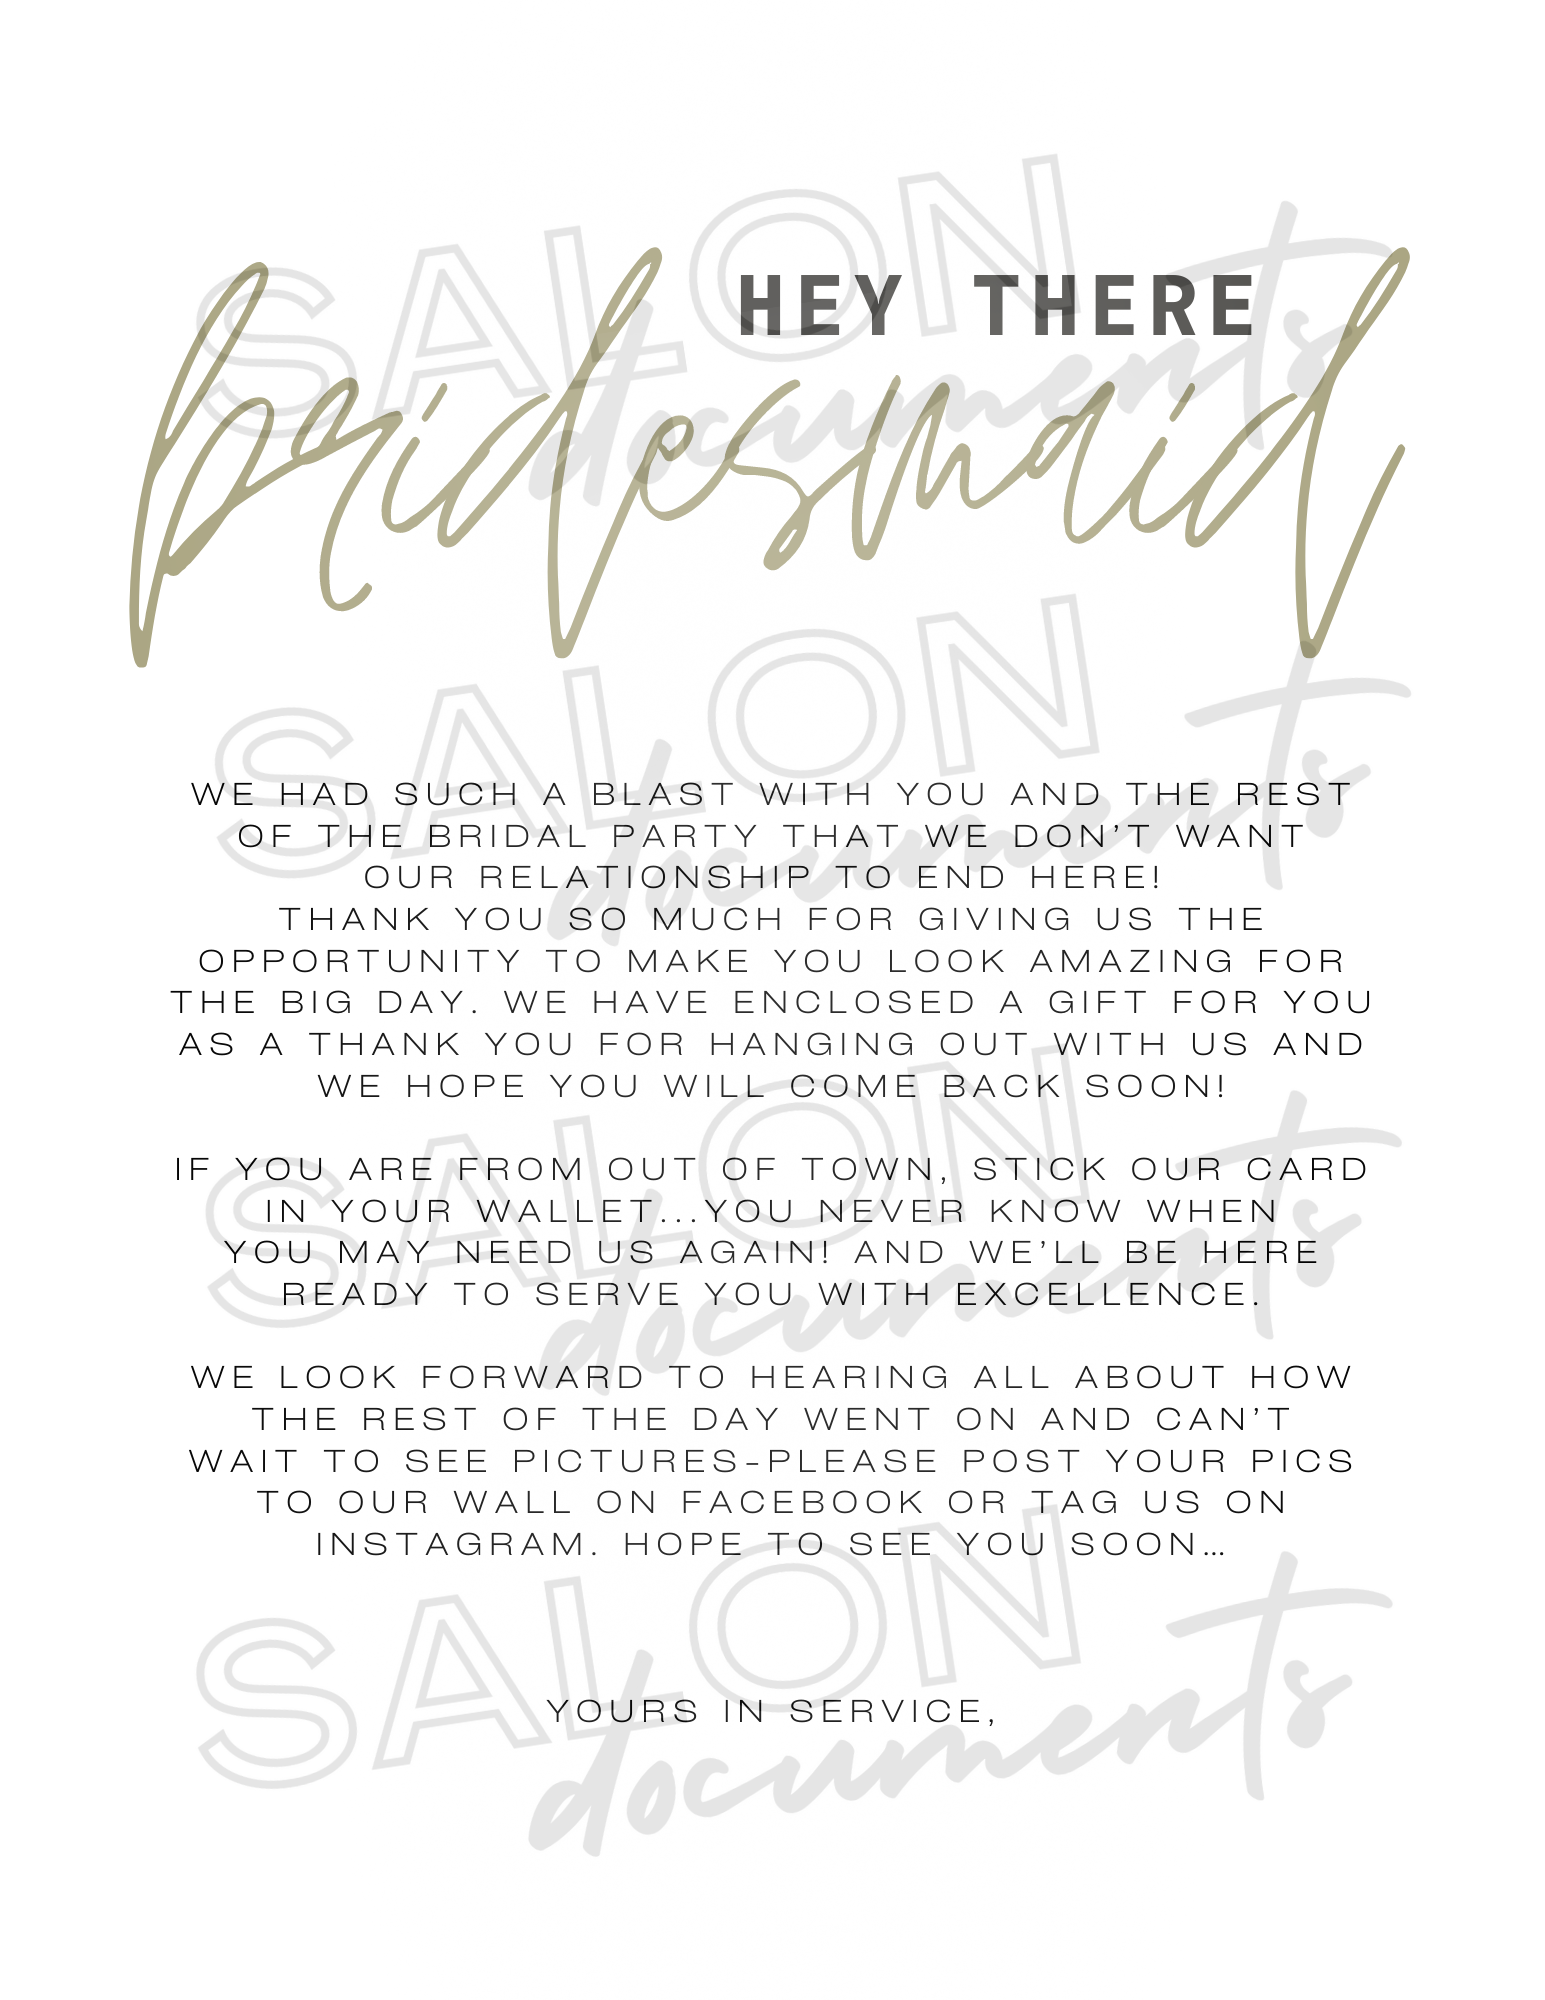 HEY THERE
bridesmaid
WE HAD SUCH A BLAST WITH YOU AND THE REST
OF THE BRIDAL PARTY THAT WE DON’T WANT
OUR RELATIONSHIP TO END HERE!
THANK YOU SO MUCH FOR GIVING US THE
OPPORTUNITY TO MAKE YOU LOOK AMAZING FOR
THE BIG DAY. WE HAVE ENCLOSED A GIFT FOR YOU
AS A THANK YOU FOR HANGING OUT WITH US AND
WE HOPE YOU WILL COME BACK SOON!
IF YOU ARE FROM OUT OF TOWN, STICK OUR CARD
IN YOUR WALLET...YOU NEVER KNOW WHEN
YOU MAY NEED US AGAIN! AND WE’LL BE HERE
READY TO SERVE YOU WITH EXCELLENCE.
WE LOOK FORWARD TO HEARING ALL ABOUT HOW
THE REST OF THE DAY WENT ON AND CAN’T
WAIT TO SEE PICTURES-PLEASE POST YOUR PICS
TO OUR WALL ON FACEBOOK OR TAG US ON
INSTAGRAM. HOPE TO SEE YOU SOON…
YOURS IN SERVICE,
SALON
documents
SALON
documents
SALON
documents
SALON
documents